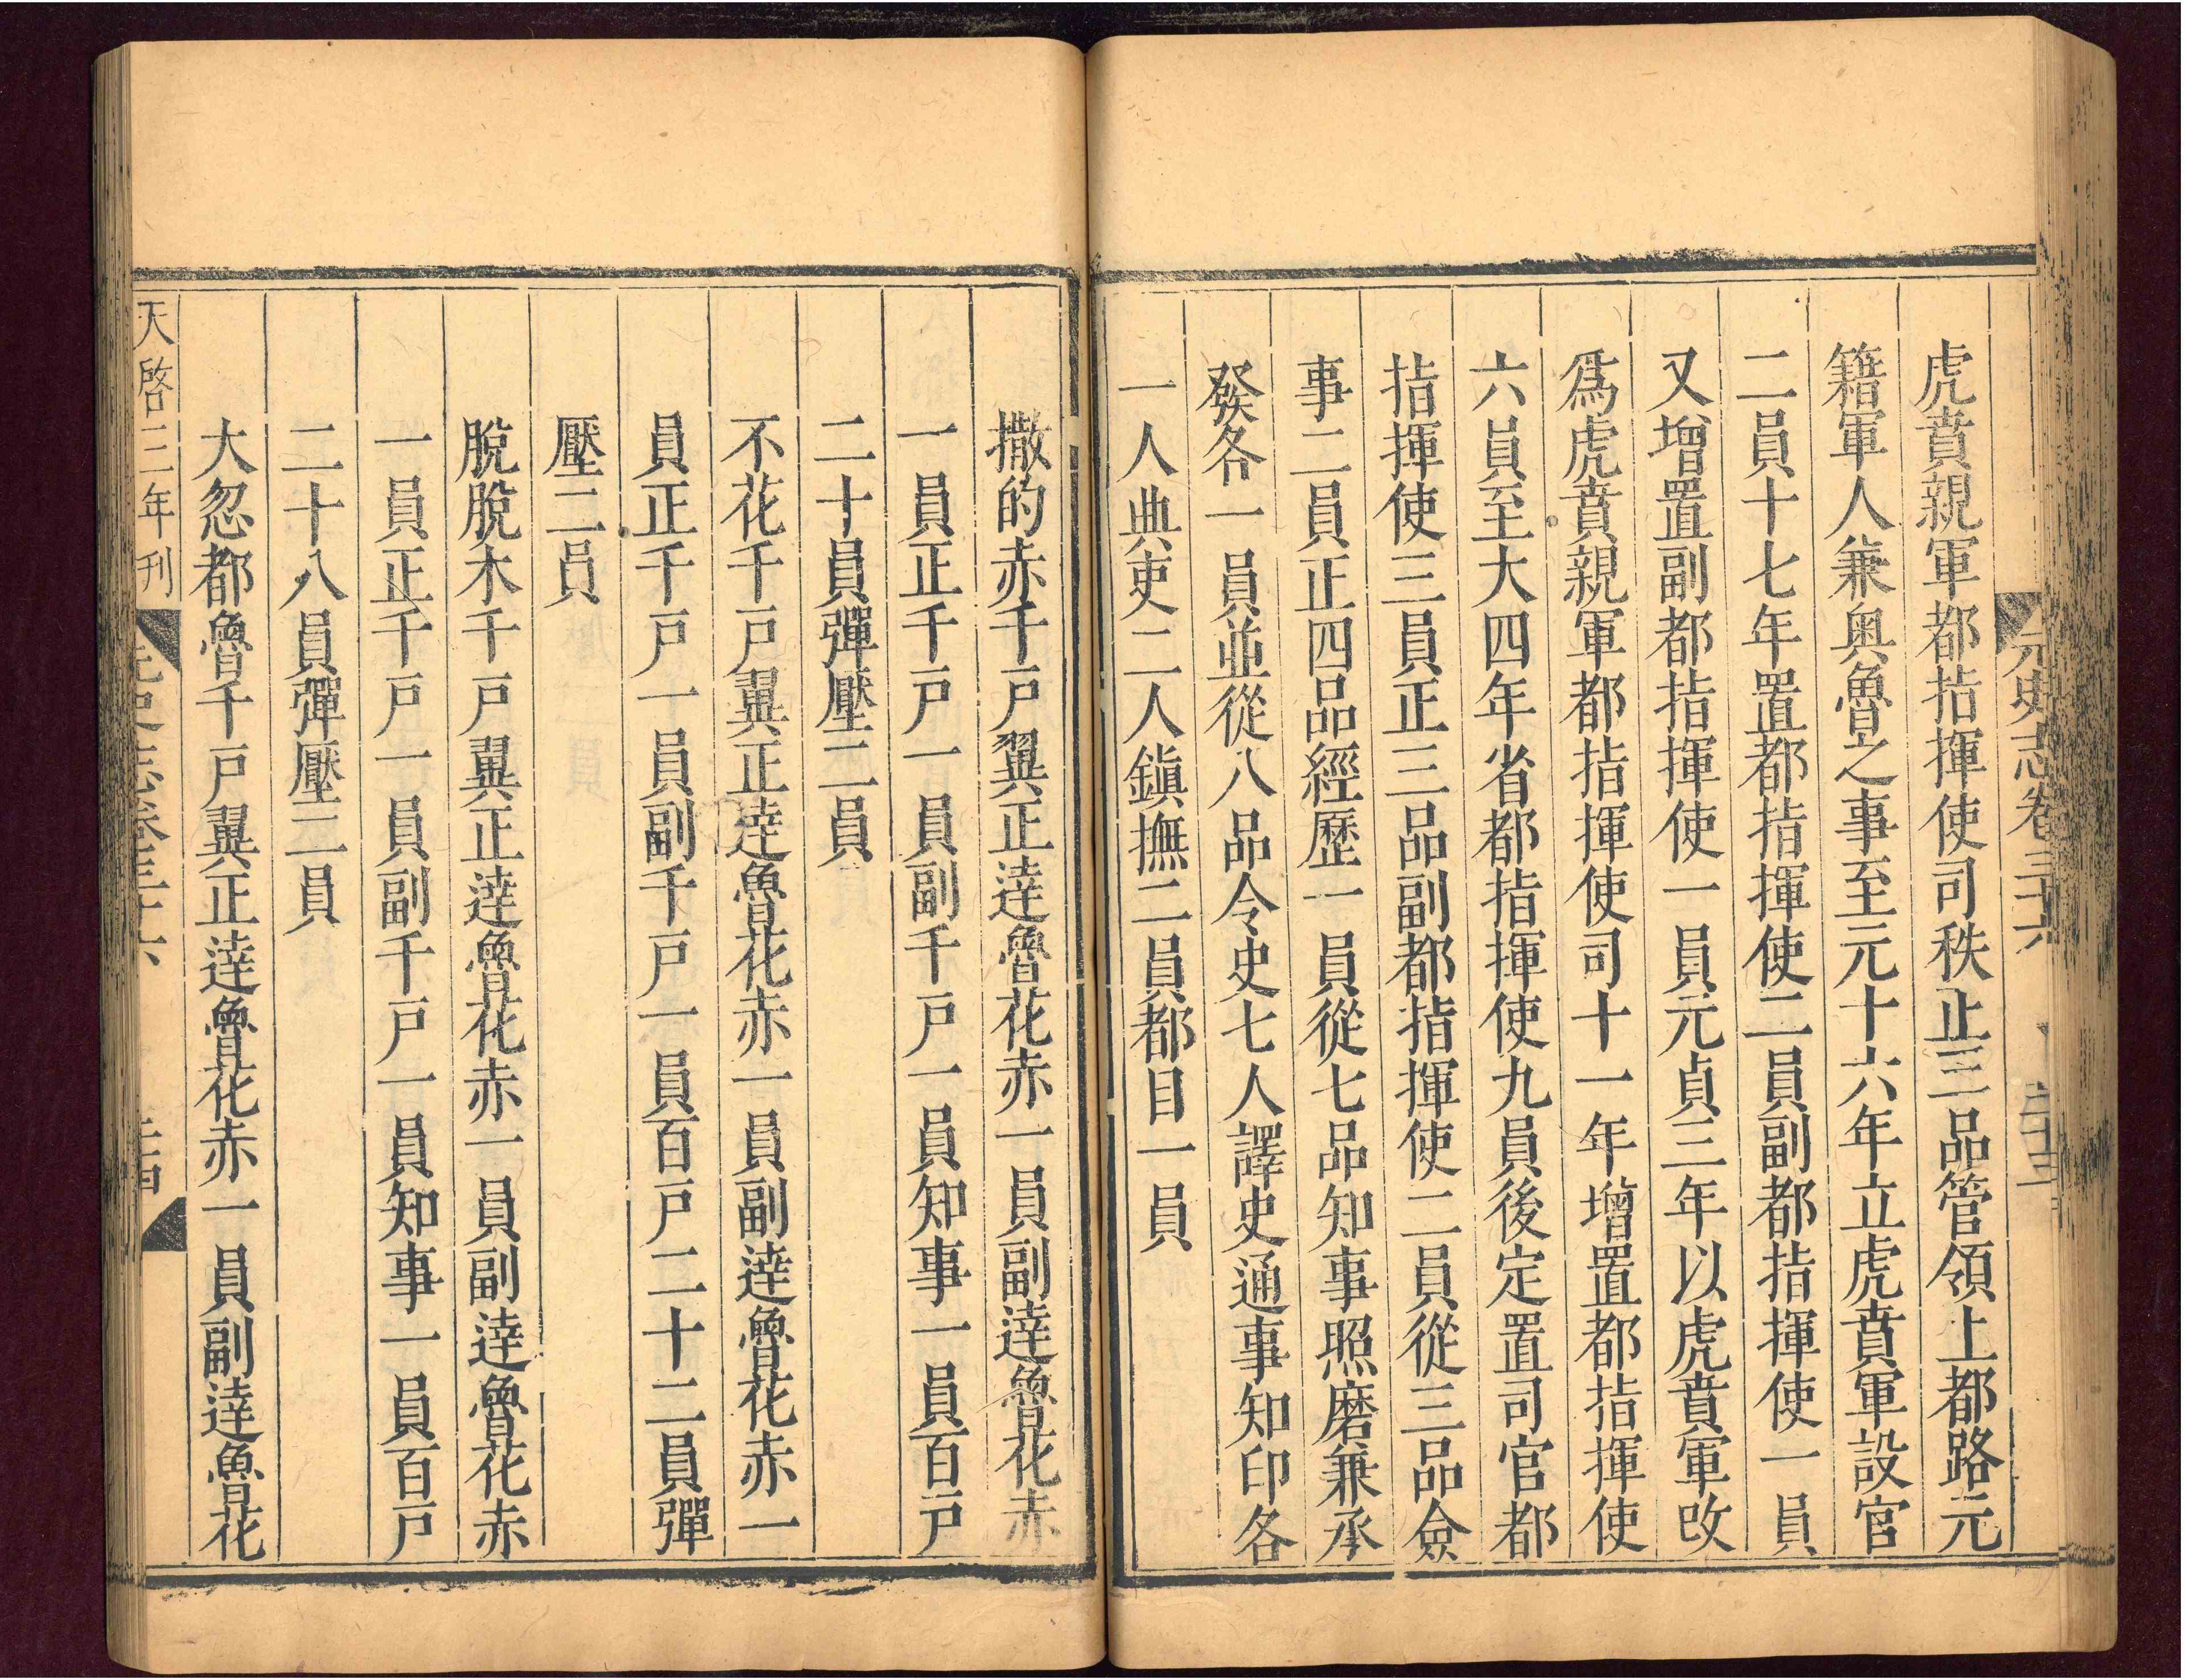 元史志卷三十六 三十三
虎賁親軍都指揮使司秩正三品管領上都路元
籍軍人兼奥魯之事至元十六年立虎賁軍設官
二員十七年置都指揮使二員副都指揮使一員
又增置副都指揮使一員元貞三年以虎賁軍改
爲虎賁親軍都指揮使司十一年增置都指揮使
六員至大四年省都指揮使九員後定置司官都
指揮使三員正三品副都指揮使二員從三品僉
事二員正四品經歷一員從七品知事照磨兼承
發各一員並從八品令史七人譯史通事知印各
一人典吏二人鎮撫二員都目一員
撒的赤千戸翼正達魯花赤一員副達魯花赤
一員正千戸一員副千戸一員知事一員百戸
二十員彈壓二員
不花千戸翼正達魯花赤一員副達魯花赤一
員正千戸一員副千戸一員百戸二十二員彈
壓二員
脫脫木千戸翼正達魯花赤一員副達魯花赤
一員正千戸一員副千戸一員知事一員百戸
二十八員彈壓二員
大忽都魯千戸翼正達魯花赤一員副達魯花
天啓三年刊 元史志卷三十六 三十四